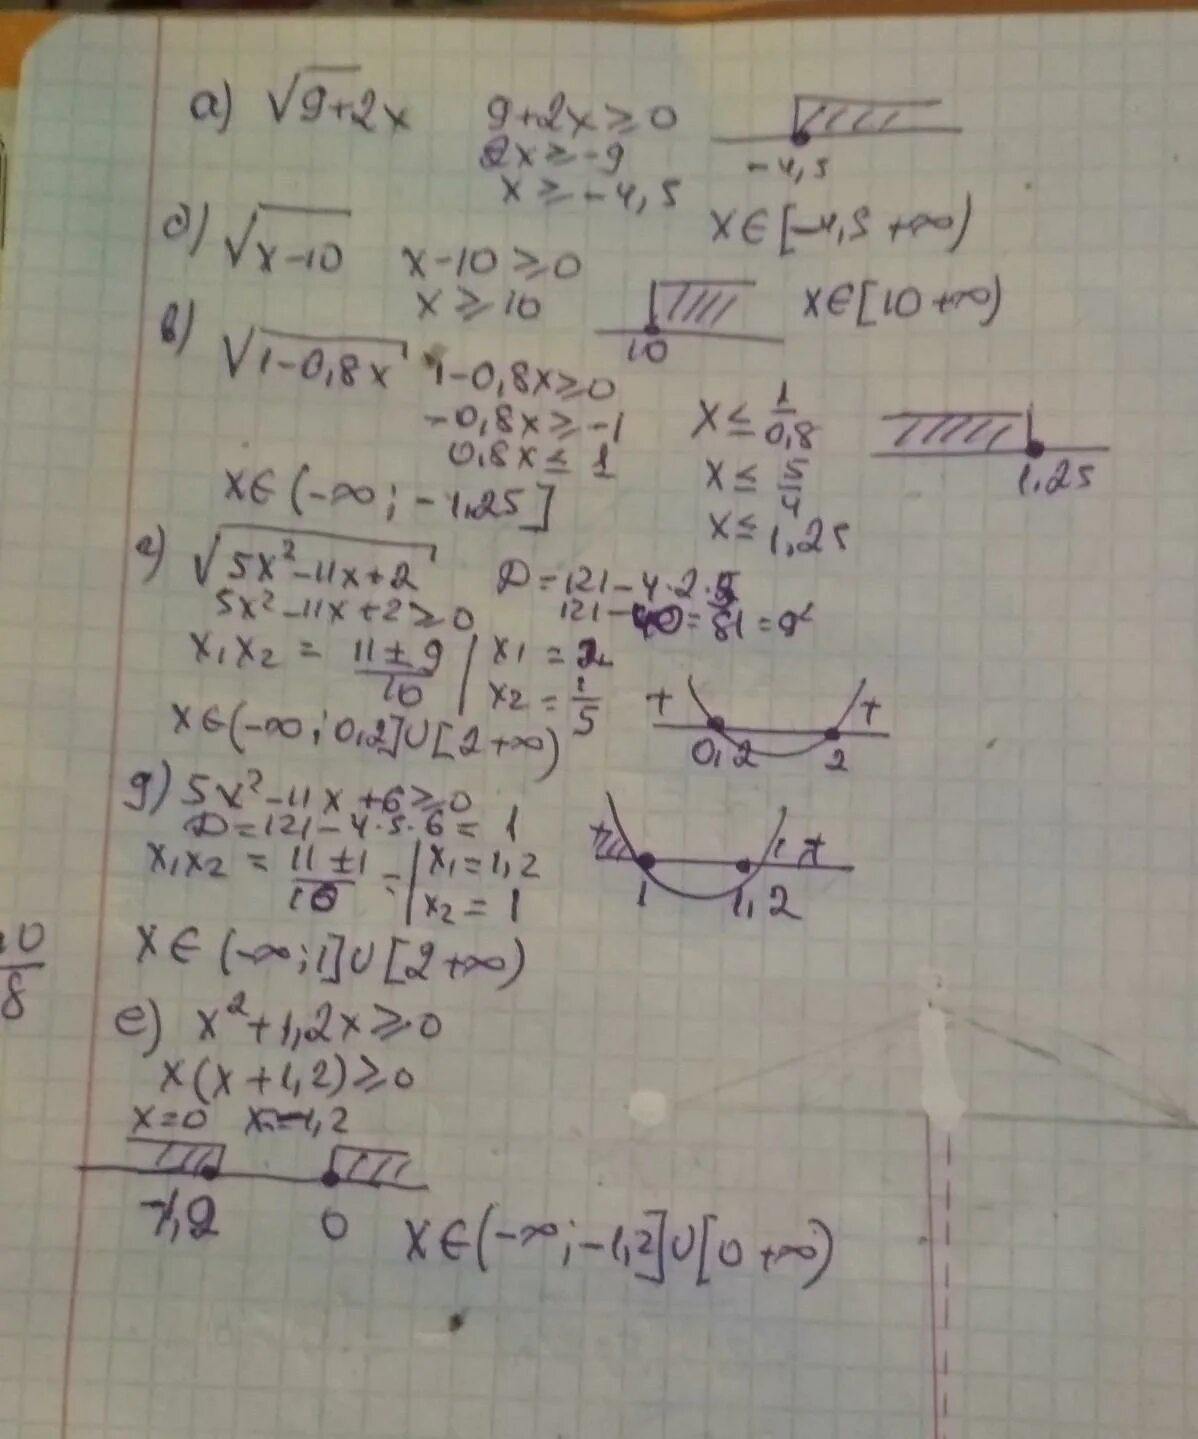 а) √9+2x 9+2x ≥ 0
2x ≥ -9
x ≥ -4,5
-4,5
x ∈ [-4,5 +∞)
б) √x-10 x-10 ≥ 0
x ≥ 10
10
x ∈ [10 +∞)
в) √1-0,8x 1-0,8x ≥ 0
-0,8x ≥ -1
0,8x ≤ 1
x ≤ 1/0,8
x ≤ 5/4
x ≤ 1,25
1,25
x ∈ (-∞; -1,25]
г) √5x²-11x+2 D = 121-4·2·5
5x²-11x+2 ≥ 0 121-40 = 81 = 9²
x₁x₂ = 11±9/10 | x₁ = 2
x₂ = 1/5
+ +
0,2 2
x ∈ (-∞; 0,2] ∪ [2 +∞)
g) 5x²-11x+6 ≥ 0
D = 121-4·5·6 = 1
x₁x₂ = 11±1/10 = | x₁ = 1,2
x₂ = 1
+ +
1 1,2
x ∈ (-∞; 1] ∪ [2 +∞)
е) x²+1,2x ≥ 0
x(x+1,2) ≥ 0
x=0 x=-1,2
-1,2 0
x ∈ (-∞; -1,2] ∪ [0 +∞)
8